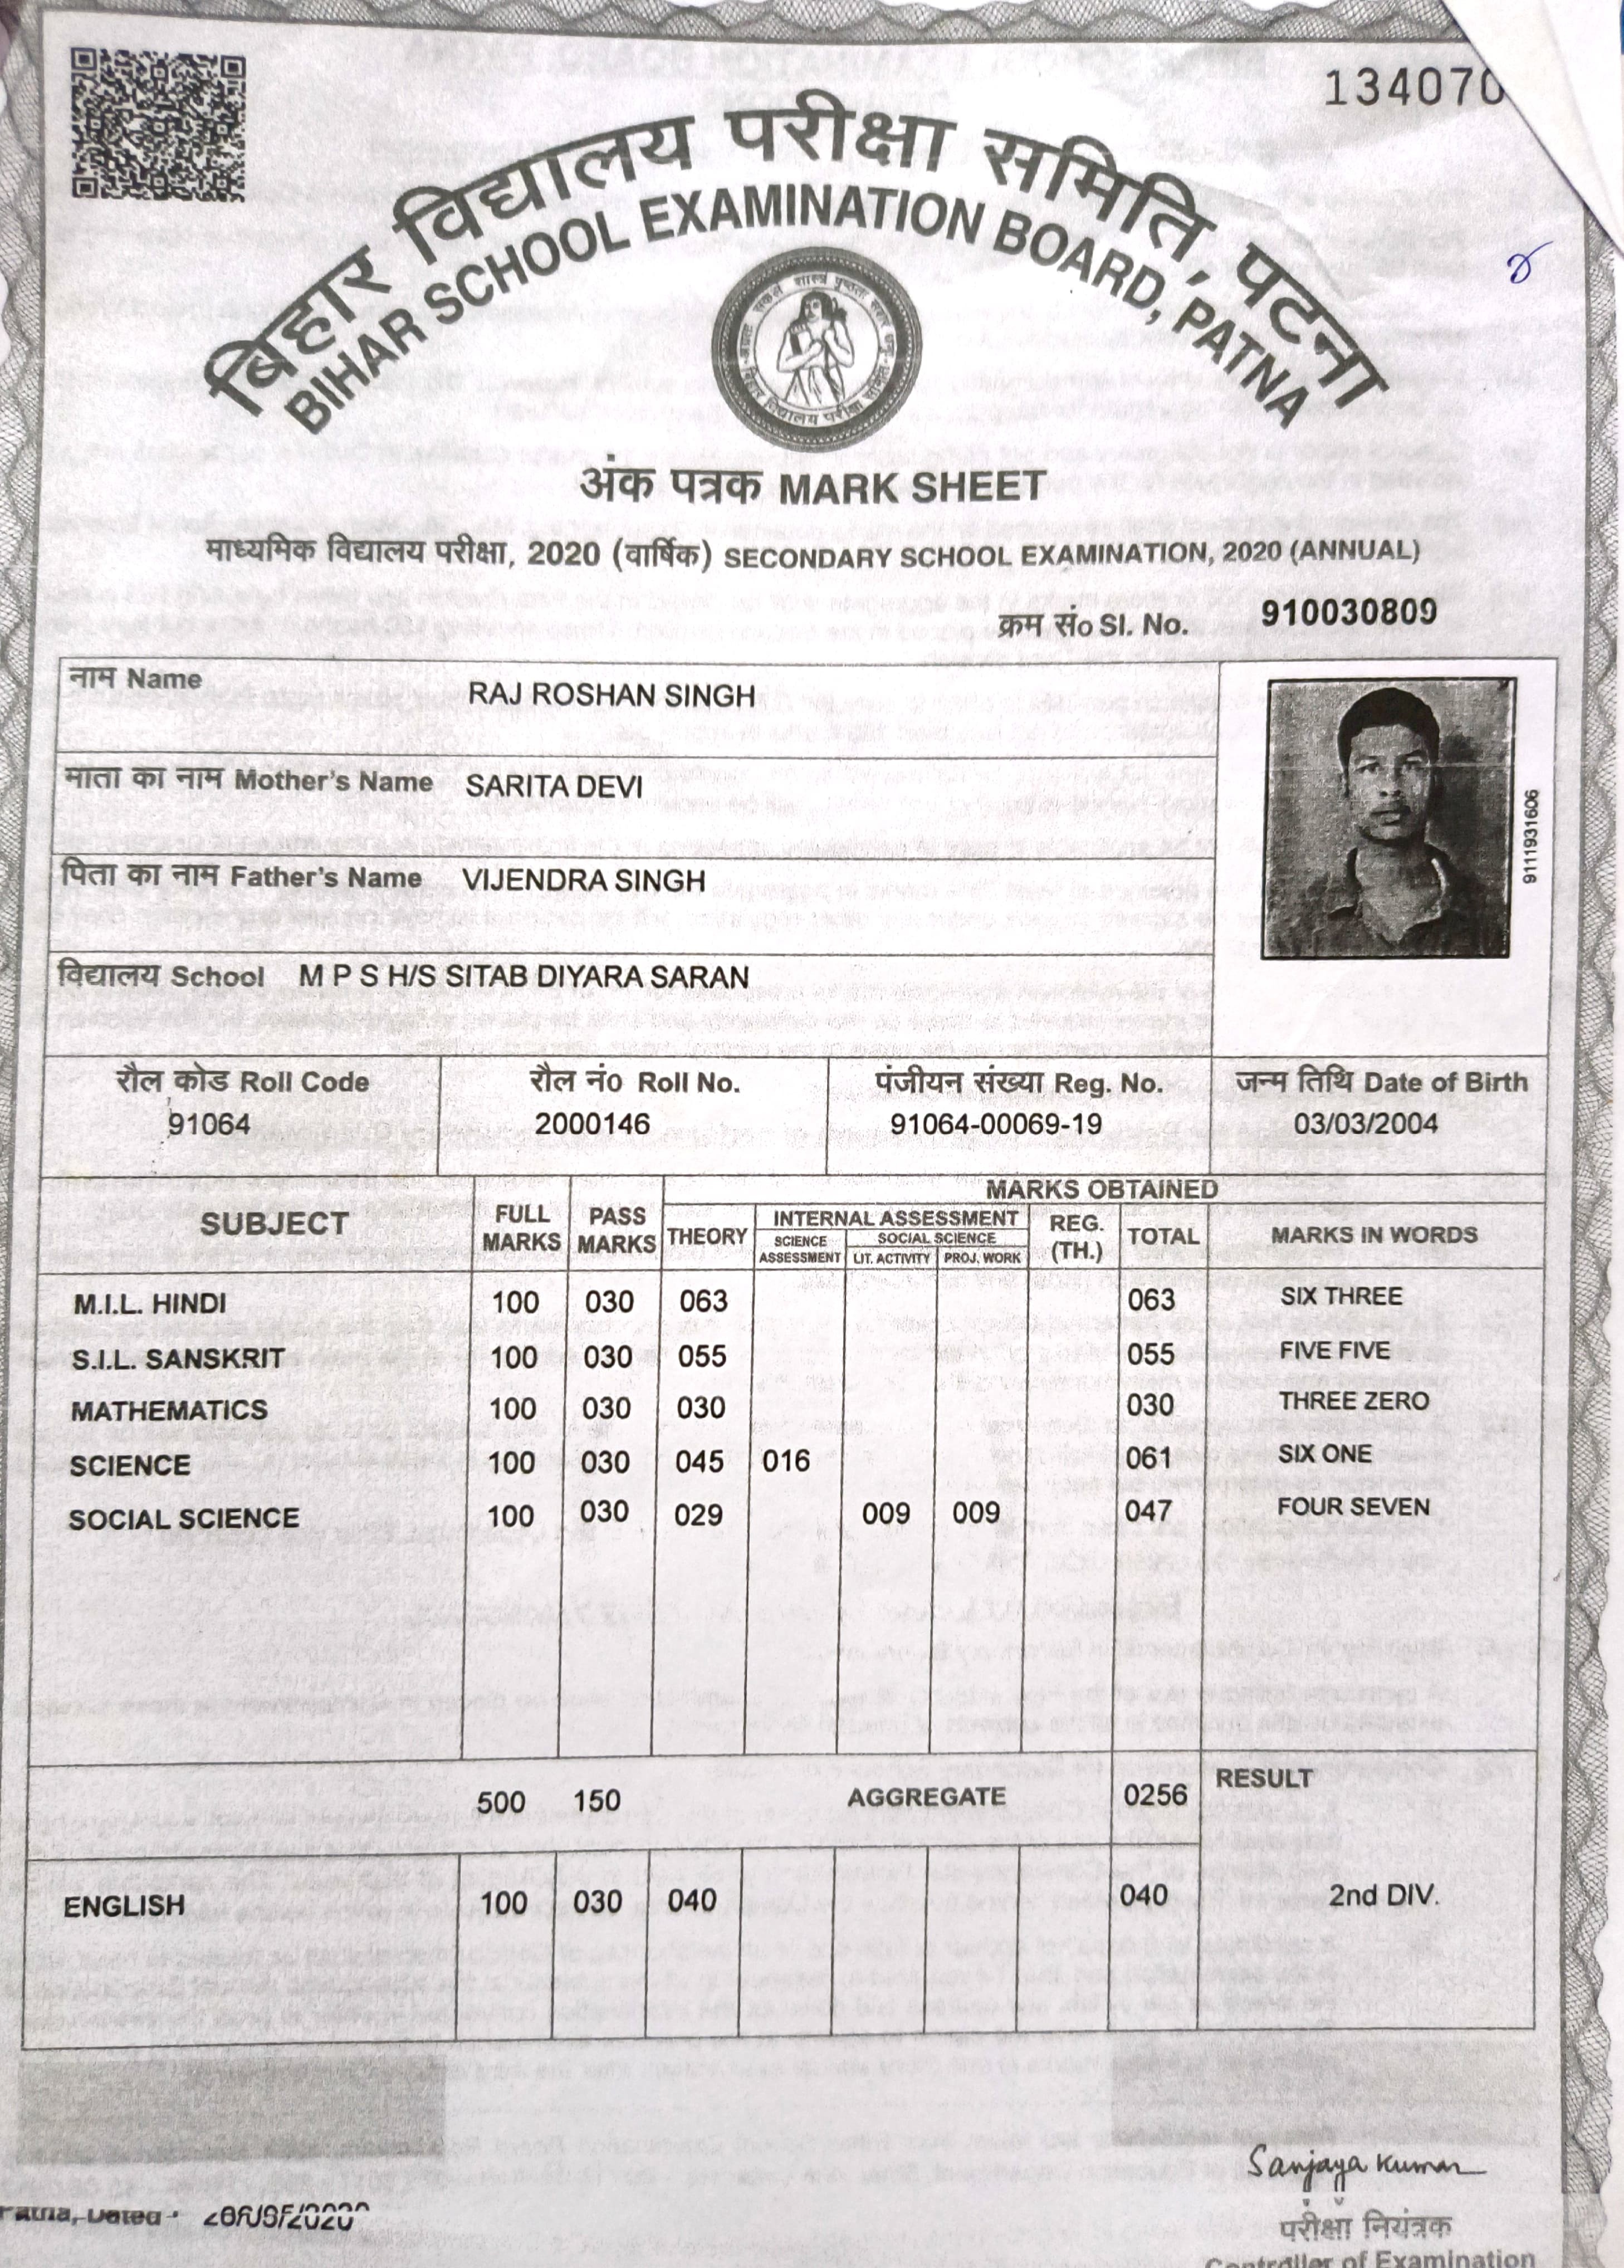 134070
बिहार विद्यालय परीक्षा समिति, पटना
BIHAR SCHOOL EXAMINATION BOARD, PATNA
अंक पत्रक MARK SHEET
माध्यमिक विद्यालय परीक्षा, 2020 (वार्षिक) SECONDARY SCHOOL EXAMINATION, 2020 (ANNUAL)
क्रम सं० Sl. No. 910030809
नाम Name RAJ ROSHAN SINGH
माता का नाम Mother's Name SARITA DEVI
पिता का नाम Father's Name VIJENDRA SINGH
विद्यालय School M P S H/S SITAB DIYARA SARAN
9111931606
रौल कोड Roll Code रौल नं० Roll No. पंजीयन संख्या Reg. No. जन्म तिथि Date of Birth
91064 2000146 91064-00069-19 03/03/2004
MARKS OBTAINED
SUBJECT FULL MARKS PASS MARKS THEORY INTERNAL ASSESSMENT REG. (TH.) TOTAL MARKS IN WORDS
SCIENCE ASSESSMENT SOCIAL SCIENCE
LIT. ACTIVITY PROJ. WORK
M.I.L. HINDI 100 030 063 063 SIX THREE
S.I.L. SANSKRIT 100 030 055 055 FIVE FIVE
MATHEMATICS 100 030 030 030 THREE ZERO
SCIENCE 100 030 045 016 061 SIX ONE
SOCIAL SCIENCE 100 030 029 009 009 047 FOUR SEVEN
500 150 AGGREGATE 0256 RESULT
ENGLISH 100 030 040 040 2nd DIV.
Sanjaya Kumar
Patna, Dated 26/05/2020
परीक्षा नियंत्रक
Controller of Examination